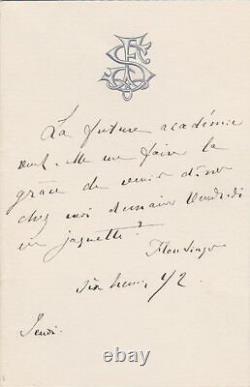 La future académie
veut-elle me faire la
grâce de venir dîner
chez moi demain Vendredi
en jaquette?
six heures 1/2
Jeudi.
ebay